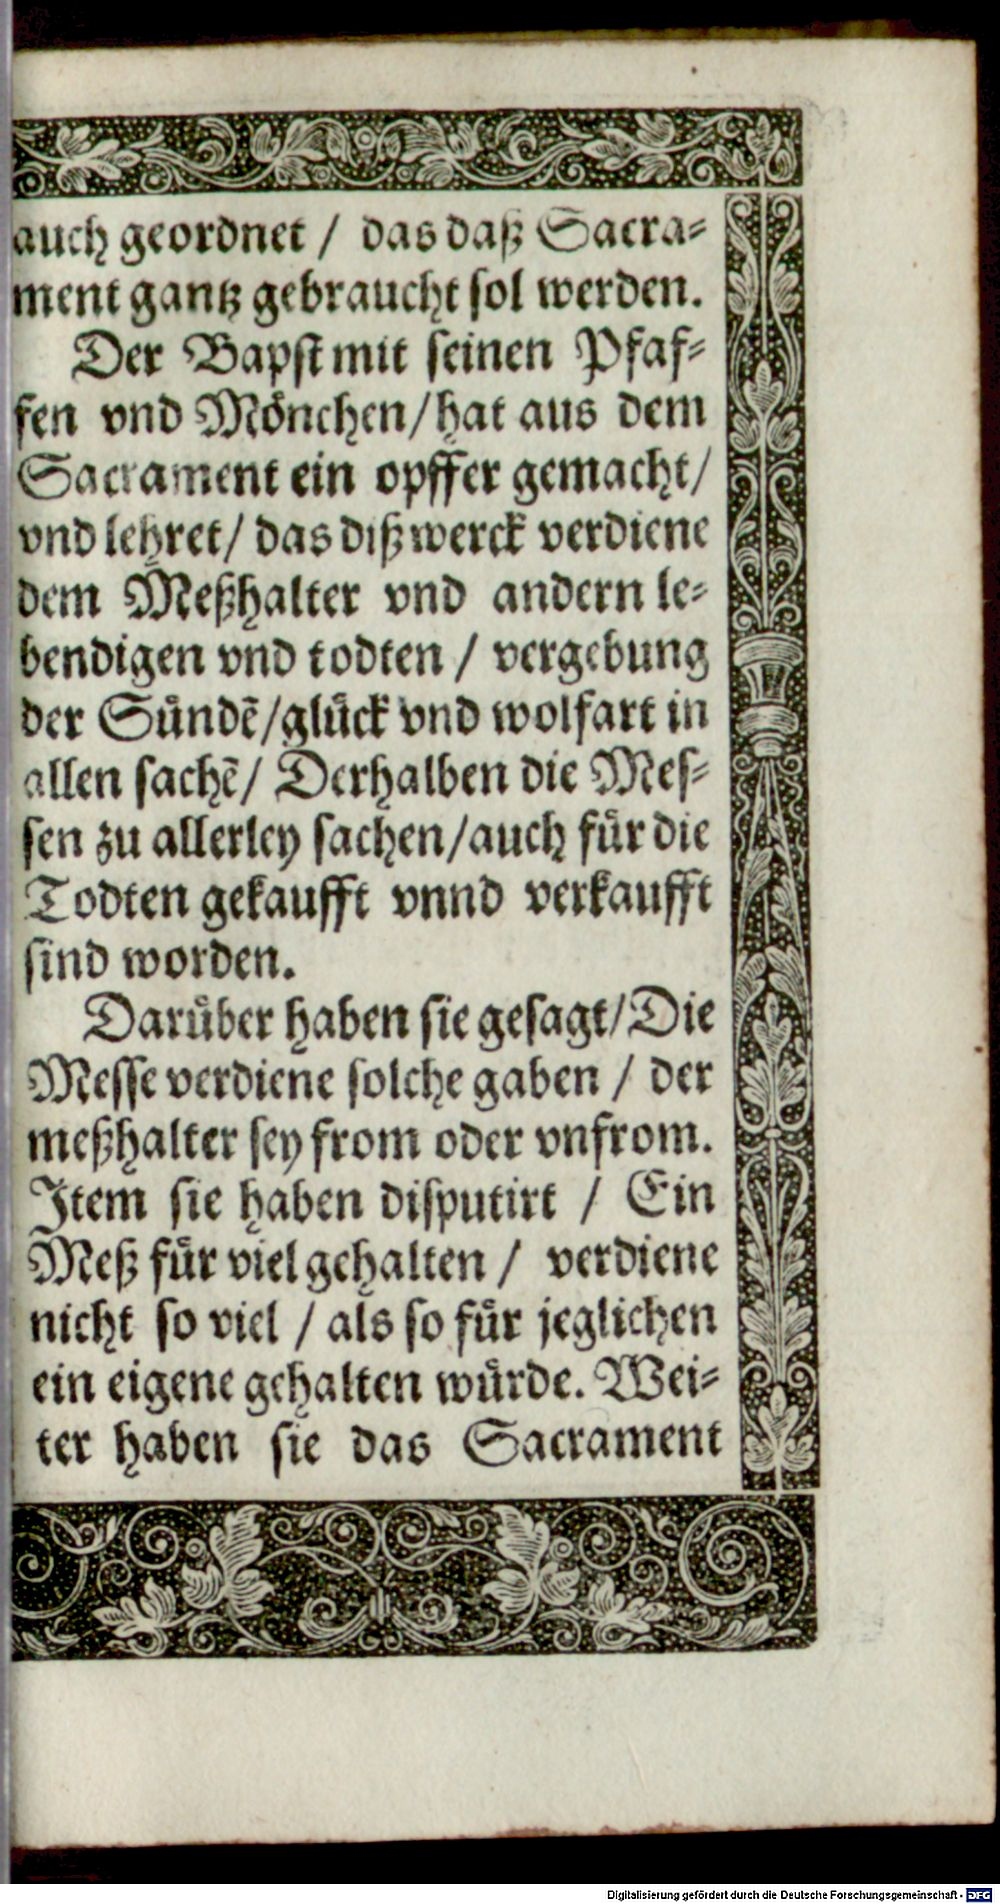 auch geordnet / das daß Sacra⸗
ment gantz gebraucht sol werden.
Der Bapst mit seinen Pfaf⸗
fen vnd Moͤnchen/hat aus dem
Sacrament ein opffer gemacht/
vnd lehret/ das diß werck verdiene
dem Meßhalter vnd andern le⸗
bendigen vnd todten / vergebung
der Suͤndẽ/gluͤck vnd wolfart in
allen sachẽ/ Derhalben die Mes⸗
sen zu allerley sachen/auch fuͤr die
Todten gekaufft vnnd verkaufft
sind worden.
Daruͤber haben sie gesagt/Die
Messe verdiene solche gaben / der
meßhalter sey from oder vnfrom.
Item sie haben disputirt / Ein
Meß fuͤr viel gehalten / verdiene
nicht so viel / als so fuͤr jeglichen
ein eigene gehalten wuͤrde. Wei⸗
ter haben sie das Sacrament
Digitalisierung gefördert durch die Deutsche Forschungsgemeinschaft - DFG